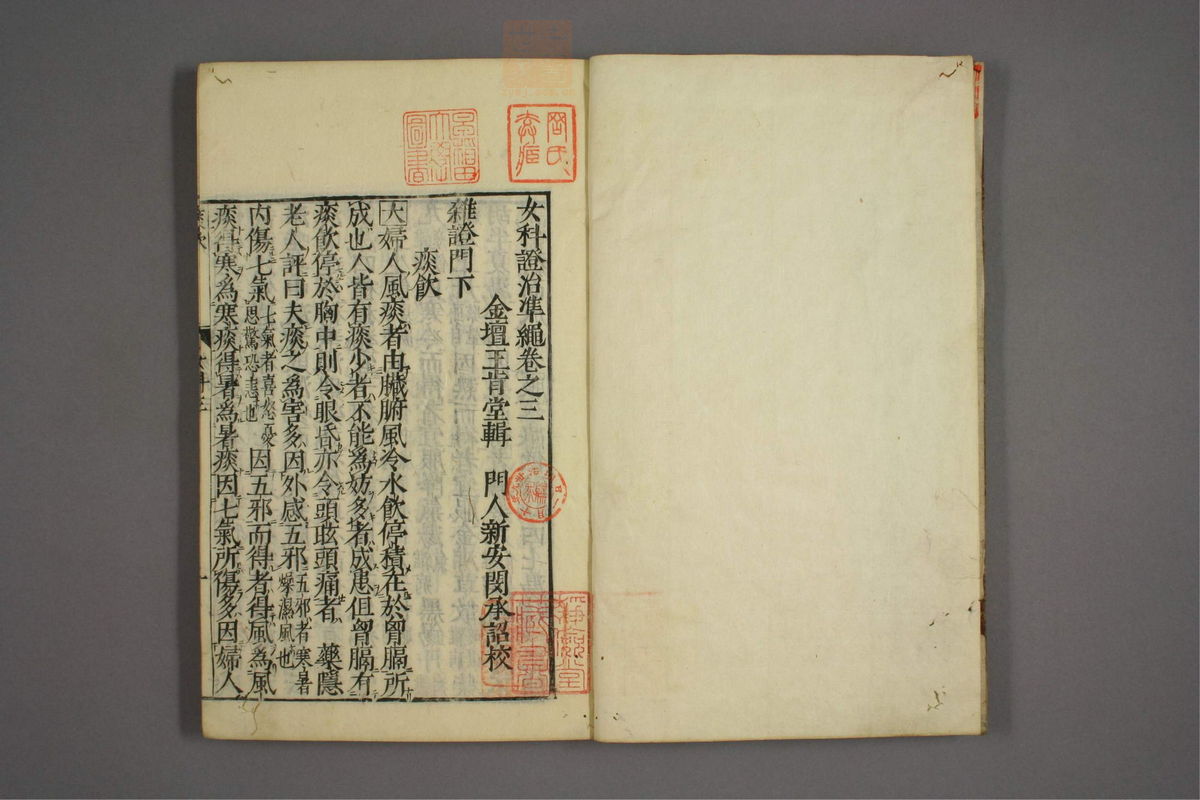 女科證治準繩卷之三
金壇王肯堂輯　門人新安閔承詔校
雜證門下
痰飲
大婦人風痰者由臟腑風冷水飲停積在於胷膈所
成也人皆有痰少者不能為妨多者成患但胷膈有
痰飲停於胸中則令眼昏亦令頭眩頭痛者　藥隱
老人評曰夫痰之為害多因外感五邪五邪者寒暑燥濕風也
內傷七氣七氣者喜怒憂思驚恐恚也　因五邪而得者得風為風
痰得寒為寒痰得暑為暑痰因七氣所傷多因婦人
早稻田大學圖書